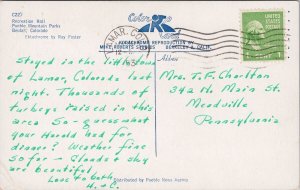 C227
Recreation Hall
Pueblo Mountain Parks
Beulah, Colorado
Ektachrome by Ray Foster
Color
KODACHROME REPRODUCTION BY
MIKE ROBERTS STUDIOS BERKELEY 2, CALIF.
LAMAR, COLO.
1¢
Address
Stayed in the little town
of Lamar, Colorado last
night. Thousands of
turkeys raised in this
area So - guess what
your Harold had for
dinner? Weather fine
so far - Clouds & sky
are beautiful
Love to both,
H. & C.
Mrs. T. F. Charlton
342 No. Main St.
Meadville
Pennsylvania
Distributed by Pueblo News Agency